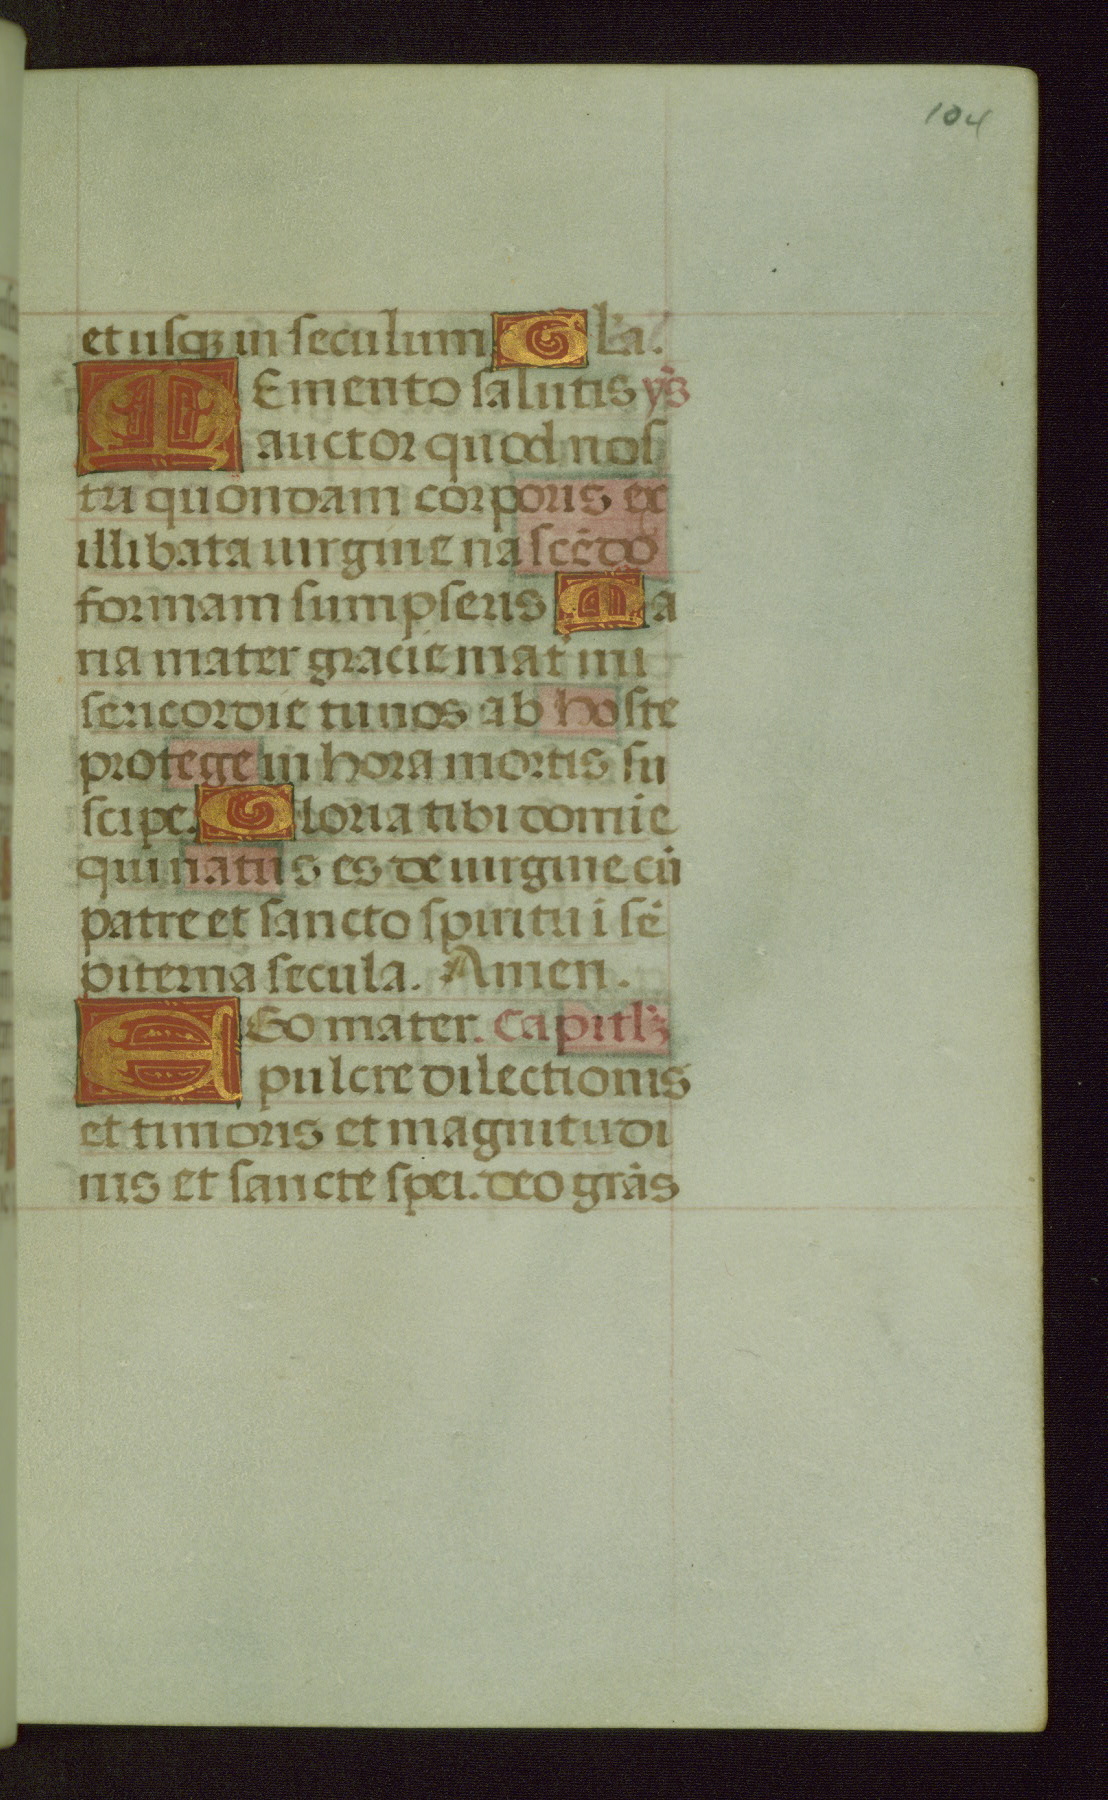 104
et usqꝫ in seculum Gl'a.
MEmento salutis yꝰ
auctor quod nos
tri quondam corporis ex
illibata uirgine nascẽdo
formam sumpseris Ma
ria mater gracie mat̃ mi
sericordie tu nos ab hoste
protege in hora mortis su
scipe. Gloria tibi domie
qui natus es de uirgine cũ
patre et sancto spiritu ĩ sẽ
piterna secula. Amen.
EGo mater. Capitlꝫ
pulcre dilectionis
et timoris et magnitudi
nis et sancte spei. deo grãs